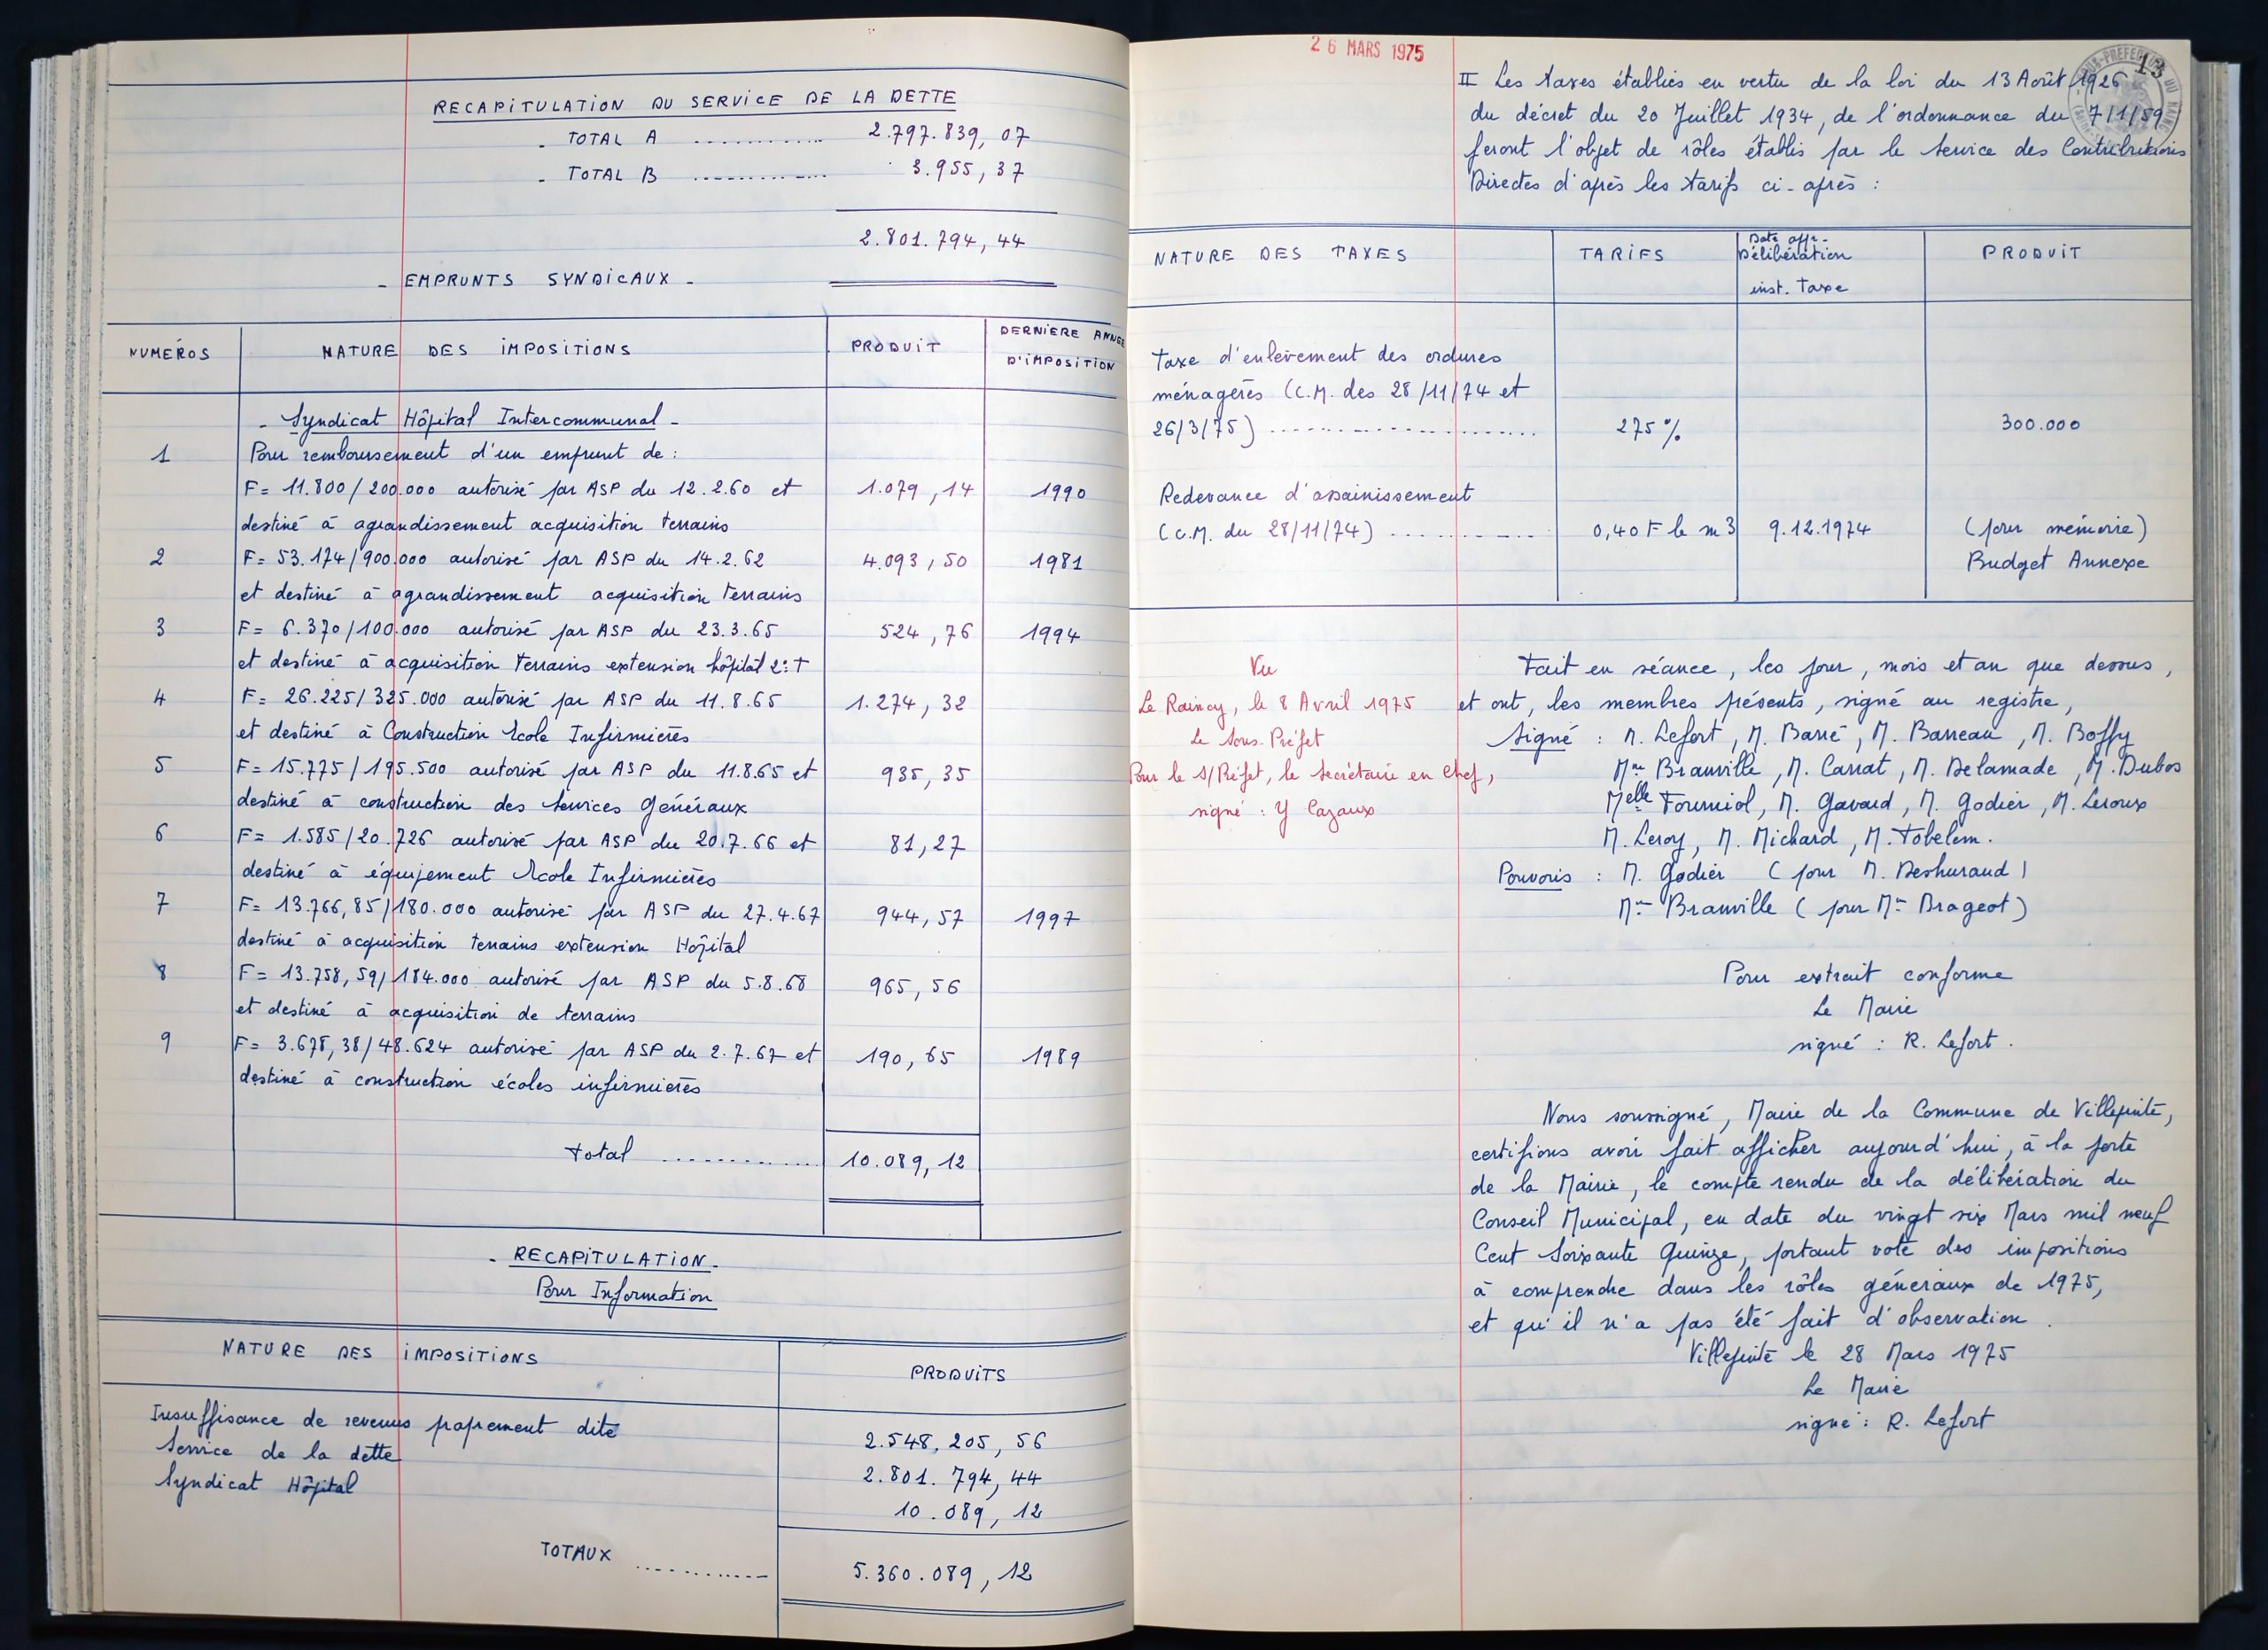 RECAPITULATION DU SERVICE DE LA DETTE
- TOTAL A ........... 2.797.839,07
- TOTAL B ........... 3.955,37
2.801.794,44
- EMPRUNTS SYNDICAUX -
NUMÉROS NATURE DES IMPOSITIONS PRODUIT DERNIERE ANNEE D'IMPOSITION
- Syndicat Hôpital Intercommunal -
1 Pour remboursement d'un emprunt de :
F= 11.800/200.000 autorisé par ASP du 12.2.60 et 1.079,14 1990
destiné à agrandissement acquisition terrains
2 F= 53.174/900.000 autorisé par ASP du 14.2.62 4.093,50 1981
et destiné à agrandissement acquisition terrains
3 F= 6.370/100.000 autorisé par ASP du 23.3.65 524,76 1994
et destiné à acquisition terrains extension hôpital 2è T
4 F= 26.225/325.000 autorisé par ASP du 11.8.65 1.274,32
et destiné à Construction Ecole Infirmières
5 F= 15.775/195.500 autorisé par ASP du 11.8.65 et 935,35
destiné à construction des Services Généraux
6 F= 1.585/20.726 autorisé par ASP du 20.7.66 et 81,27
destiné à équipement Ecole Infirmières
7 F= 13.766,85/180.000 autorisé par ASP du 27.4.67 944,57 1997
destiné à acquisition terrains extension Hôpital
8 F= 13.758,59/184.000 autorisé par ASP du 5.8.68 965,56
et destiné à acquisition de terrains
9 F= 3.678,38/48.624 autorisé par ASP du 2.7.67 et 190,65 1989
destiné à construction écoles infirmières
Total ............ 10.089,12
- RECAPITULATION -
Pour Information
NATURE DES IMPOSITIONS PRODUITS
Insuffisance de revenus proprement dite 2.548.205,56
Service de la dette 2.801.794,44
Syndicat Hôpital 10.089,12
TOTAUX ........... 5.360.089,12
26 MARS 1975
13
II Les taxes établies en vertu de la loi du 13 Août 1926
du décret du 20 Juillet 1934, de l'ordonnance du 7/1/59
feront l'objet de rôles établis par le Service des Contributions
Directes d'après les tarifs ci-après :
NATURE DES TAXES TARIFS Date app. Délibération inst. Taxe PRODUIT
Taxe d'enlèvement des ordures
ménagères (C.M. des 28/11/74 et
26/3/75) ...................... 275% 300.000
Redevance d'assainissement
(C.M. du 28/11/74) ........... 0,40 F le m3 9.12.1974 (pour mémoire)
Budget Annexe
Vu
Le Raincy, le 8 Avril 1975
Le Sous-Préfet
Pour le S/Préfet, le Secrétaire en Chef,
signé : Y Cazaux
Fait en séance, les jour, mois et an que dessus,
et ont, les membres présents, signé au registre,
Signé : M. Lefort, M. Barré, M. Barreau, M. Boffy
Mme Branville, M. Carrat, M. Delamade, M. Dubos
Melle Fourniol, M. Gavard, M. Godier, M. Leroux
M. Leroy, M. Michard, M. Tobelem.
Pouvoirs : M. Godier (pour M. Deshuraud)
Mme Branville (pour Mme Brageot)
Pour extrait conforme
Le Maire
signé : R. Lefort.
Nous soussigné, Maire de la Commune de Villepinte,
certifions avoir fait afficher aujourd'hui, à la porte
de la Mairie, le compte rendu de la délibération du
Conseil Municipal, en date du vingt six Mars mil neuf
Cent Soixante Quinze, portant vote des impositions
à comprendre dans les rôles généraux de 1975,
et qu'il n'a pas été fait d'observation.
Villepinte le 28 Mars 1975
Le Maire
signé : R. Lefort